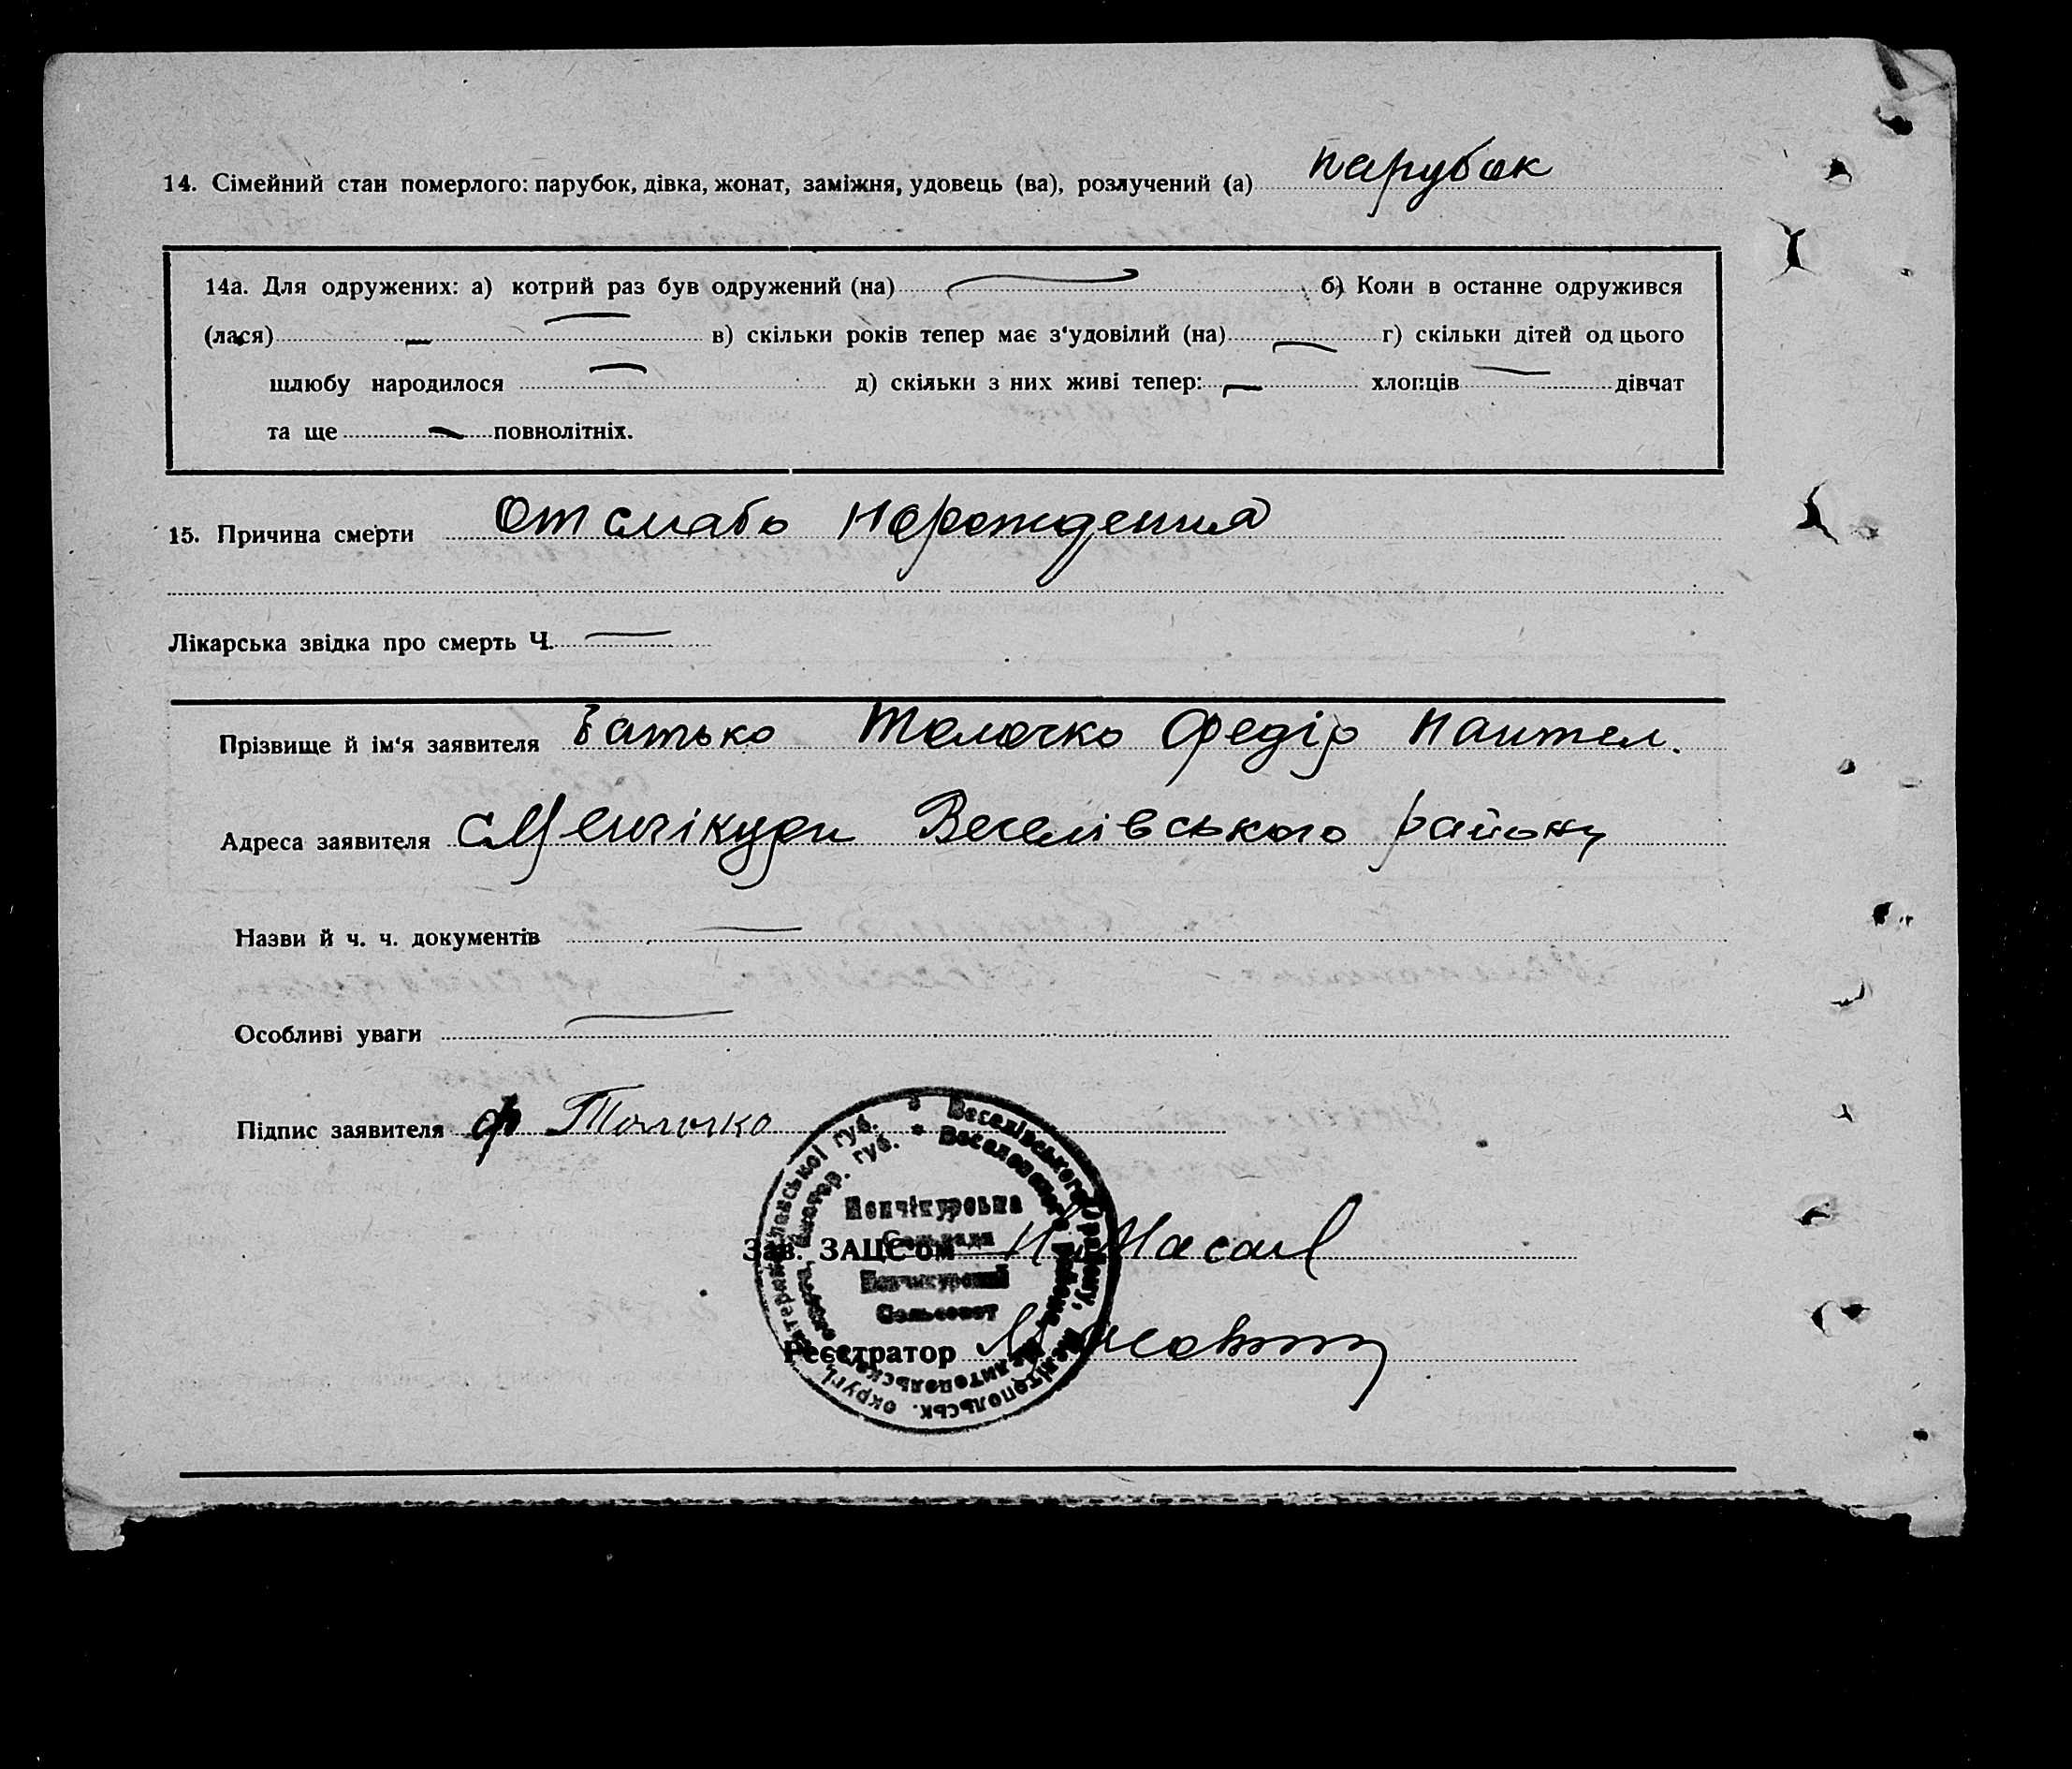 14. Сімейний стан померлого: парубок, дівка, жонат, заміжня, удовець (ва), розлучений (а) парубок
14а. Для одружених: а) котрий раз був одружений (на) б) Коли в останне одружився
(лася) в) скільки років тепер має з'удовілий (на) г) скільки дітей од цього
шлюбу народилося д) скільки з них живі тепер: хлопців дівчат
та ще повнолітніх.
15. Причина смерти От слабо норождения
Лікарська звідка про смерть Ч.
Прізвище й ім'я заявителя Батько Толочко Федір Пантел.
Адреса заявителя с Менчікури Веселівського району
Назви й ч. ч. документів
Особливі уваги
Підпис заявителя ф Толочко
Менчікурська
Сельрада
Менчикурский
Сельсовет
Зав. ЗАЦС'ом
Реєстратор